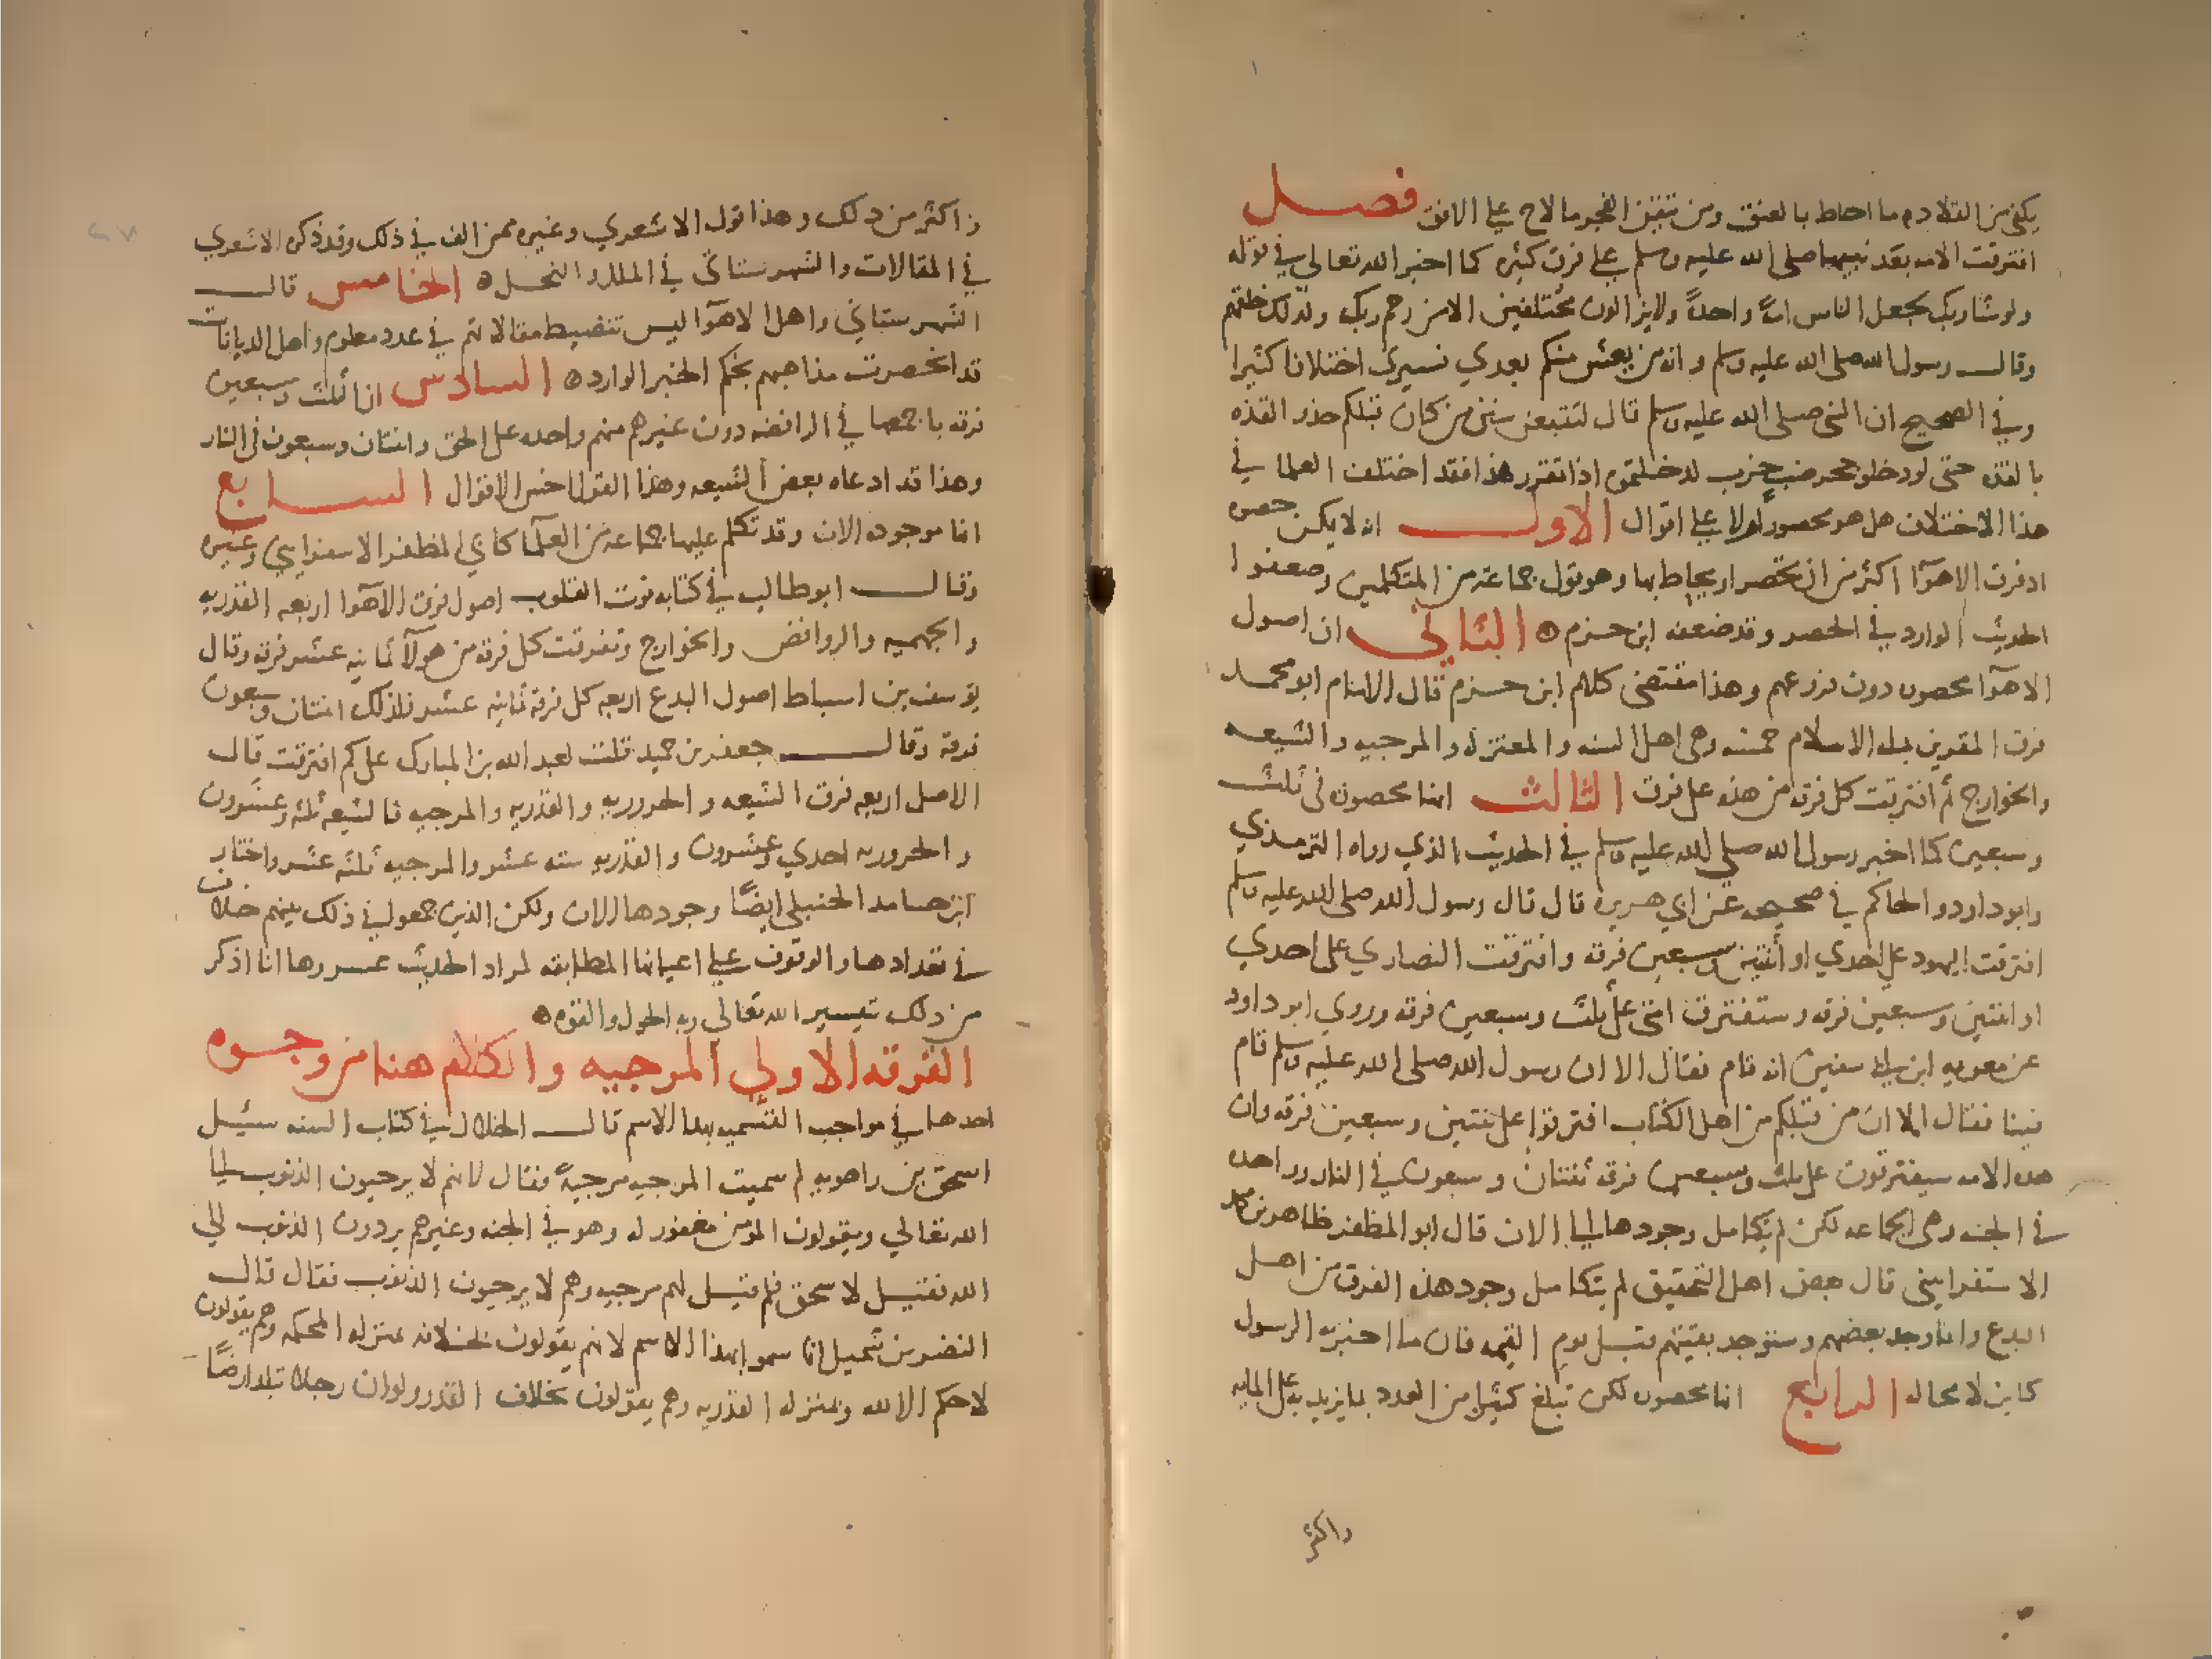 يكفي من القلاده ما احاط بالعنق ومن تيقن الفجر ما لاح علي الافق فصل
افترقت الامه بعد نبيها صلى الله عليه وسلم علي فرق كثيره كما اخبر الله تعالي في قوله
ولو شا ربك لجعل الناس امةً واحدةً ولا يزالون مختلفين الا من رحم ربك ولذلك خلقهم
وقال رسول الله صلى الله عليه وسلم وانه من يعش منكم بعدي فسيرى اختلافا كثيرا
وفي الصحيح ان النبي صلى الله عليه وسلم قال لتتبعن سنن من كان قبلكم حذو القذه
بالقذه حتى لو دخلو جحر ضب خرب لدخلتموه اذا تقرر هذا فقد اختلف العلما في
هذا الاختلاف هل هو محصور او لا علي اقوال الاول انه لا يمكن حصره
اذ فرق الاهوآ اكثر من ان تحصر او يحاط بها وهو قول جماعة من المتكلمين وضعفوا
الحديث الوارد في الحصر وقد ضعفه ابن حزم الثاني ان اصول
الاهوآ محصوره دون فروعهم وهذا مقتضى كلام ابن حزم قال الامام ابو محمد
فرق المقرين بمله الاسلام خمسه وهي اهل السنه والمعتزله والمرجيه والشيعه
والخوارج ثم افترقت كل فرقه من هذه على فرق الثالث انها محصوره في ثلث
وسبعين كما اخبر رسول الله صلى الله عليه وسلم في الحديث الذي رواه الترمذي
وابو داود والحاكم في صحيحه عن ابي هريره قال قال رسول الله صلى الله عليه وسلم
افترقت اليهود على احدي او اثنتين وسبعين فرقه وافترقت النصاري على احدي
او اثنتين وسبعين فرقه وستفترق امتي على ثلث وسبعين فرقه وروي ابو داود
عن معويه ابن ابي سفين انه قام فقال الا ان رسول الله صلى الله عليه وسلم قام
فينا فقال الا ان من قبلكم من اهل الكتاب افترقوا على ثنتين وسبعين فرقه وان
هذه الامه سيفترقون على ثلث وسبعين فرقه ثنتان وسبعون في النار وواحده
في الجنه وهي الجماعه لكن لم يتكامل وجودها الي الان قال ابو المظفر طاهر بن محمد
الاسفرايني قال بعض اهل التحقيق لم يتكامل وجود هذه الفرق من اهل
البدع وانما وجد بعضهم وستوجد بقيتهم قبل يوم القيمه فان ما اخبر به الرسول
كاين لا محاله الرابع انها محصوره لكن تبلغ كثيرا من العدد بما يزيد به على المايه
واكثر
واكثر من ذلك وهذا قول الاشعري وغيره ممن الف في ذلك وقد ذكره الاشعري
في المقالات والشهرستاني في الملل والنحل الخامس قال
الشهرستاني واهل الاهوآ ليس تنضبط مقالاتهم في عدد معلوم واهل الديانات
قد انحصرت مذاهبهم بحكم الخبر الوارد السادس ان الثلث وسبعين
فرقه باجمعها في الرافضه دون غيرهم منهم واحده على الحق واثنتان وسبعون في النار
وهذا قد ادعاه بعض الشيعه وهذا القول اخس الاقوال السابع
انها موجوده الان وقد تكلم عليها جماعة من العلمآ كابي المظفر الاسفرايني وغيره
وقال ابو طالب في كتابه قوت القلوب اصول فرق الاهوا اربعه القدريه
والجهميه والروافض والخوارج وتفرقت كل فرقه من هولآ ثمانيه عشر فرقه وقال
يوسف بن اسباط اصول البدع اربعه كل فرقه ثمانيه عشر فلذلك اثنتان وسبعون
فرقة وقال جعفر بن حميد قلت لعبد الله بن المبارك على كم افترقت قال
الاصل اربعه فرق الشيعه والحروريه والقدريه والمرجيه فالشيعه ثلثه وعشرون
والحروريه احدي وعشرون والقدريه سته عشر والمرجيه ثلثه عشر واختار
ابن حامد الحنبلي ايضًا وجودها الان ولكن الذين جمعوا في ذلك بينهم خلاف
في تعدادها والوقوف علي اعيانها المطابقه لمراد الحديث عسر وها انا اذكر
من ذلك تيسير الله تعالي وبه الحول والقوه
الفرقه الاولي المرجيه والكلام هنا من وجوه
احدها في مواجب التسميه بهذا الاسم قال الخلال في كتاب السنه سيل
اسحق بن راهويه لم سميت المرجيه مرجيةً فقال لانهم لا يرجيون الذنوب الي
الله تعالي ويقولون المومن مغفور له وهو في الجنه وغيرهم يردون الذنوب الي
الله فقيل لاسحق فلم قيل لهم مرجيه وهم لا يرجيون الذنوب فقال قال
النضر بن شميل انما سموا بهذا الاسم لانهم يقولون بخلافه بمنزله المحكمه وهم يقولون
لا حكم الا لله وبمنزله القدريه وهم يقولون بخلاف القدر ولو ان رجلا تبدا رضًا